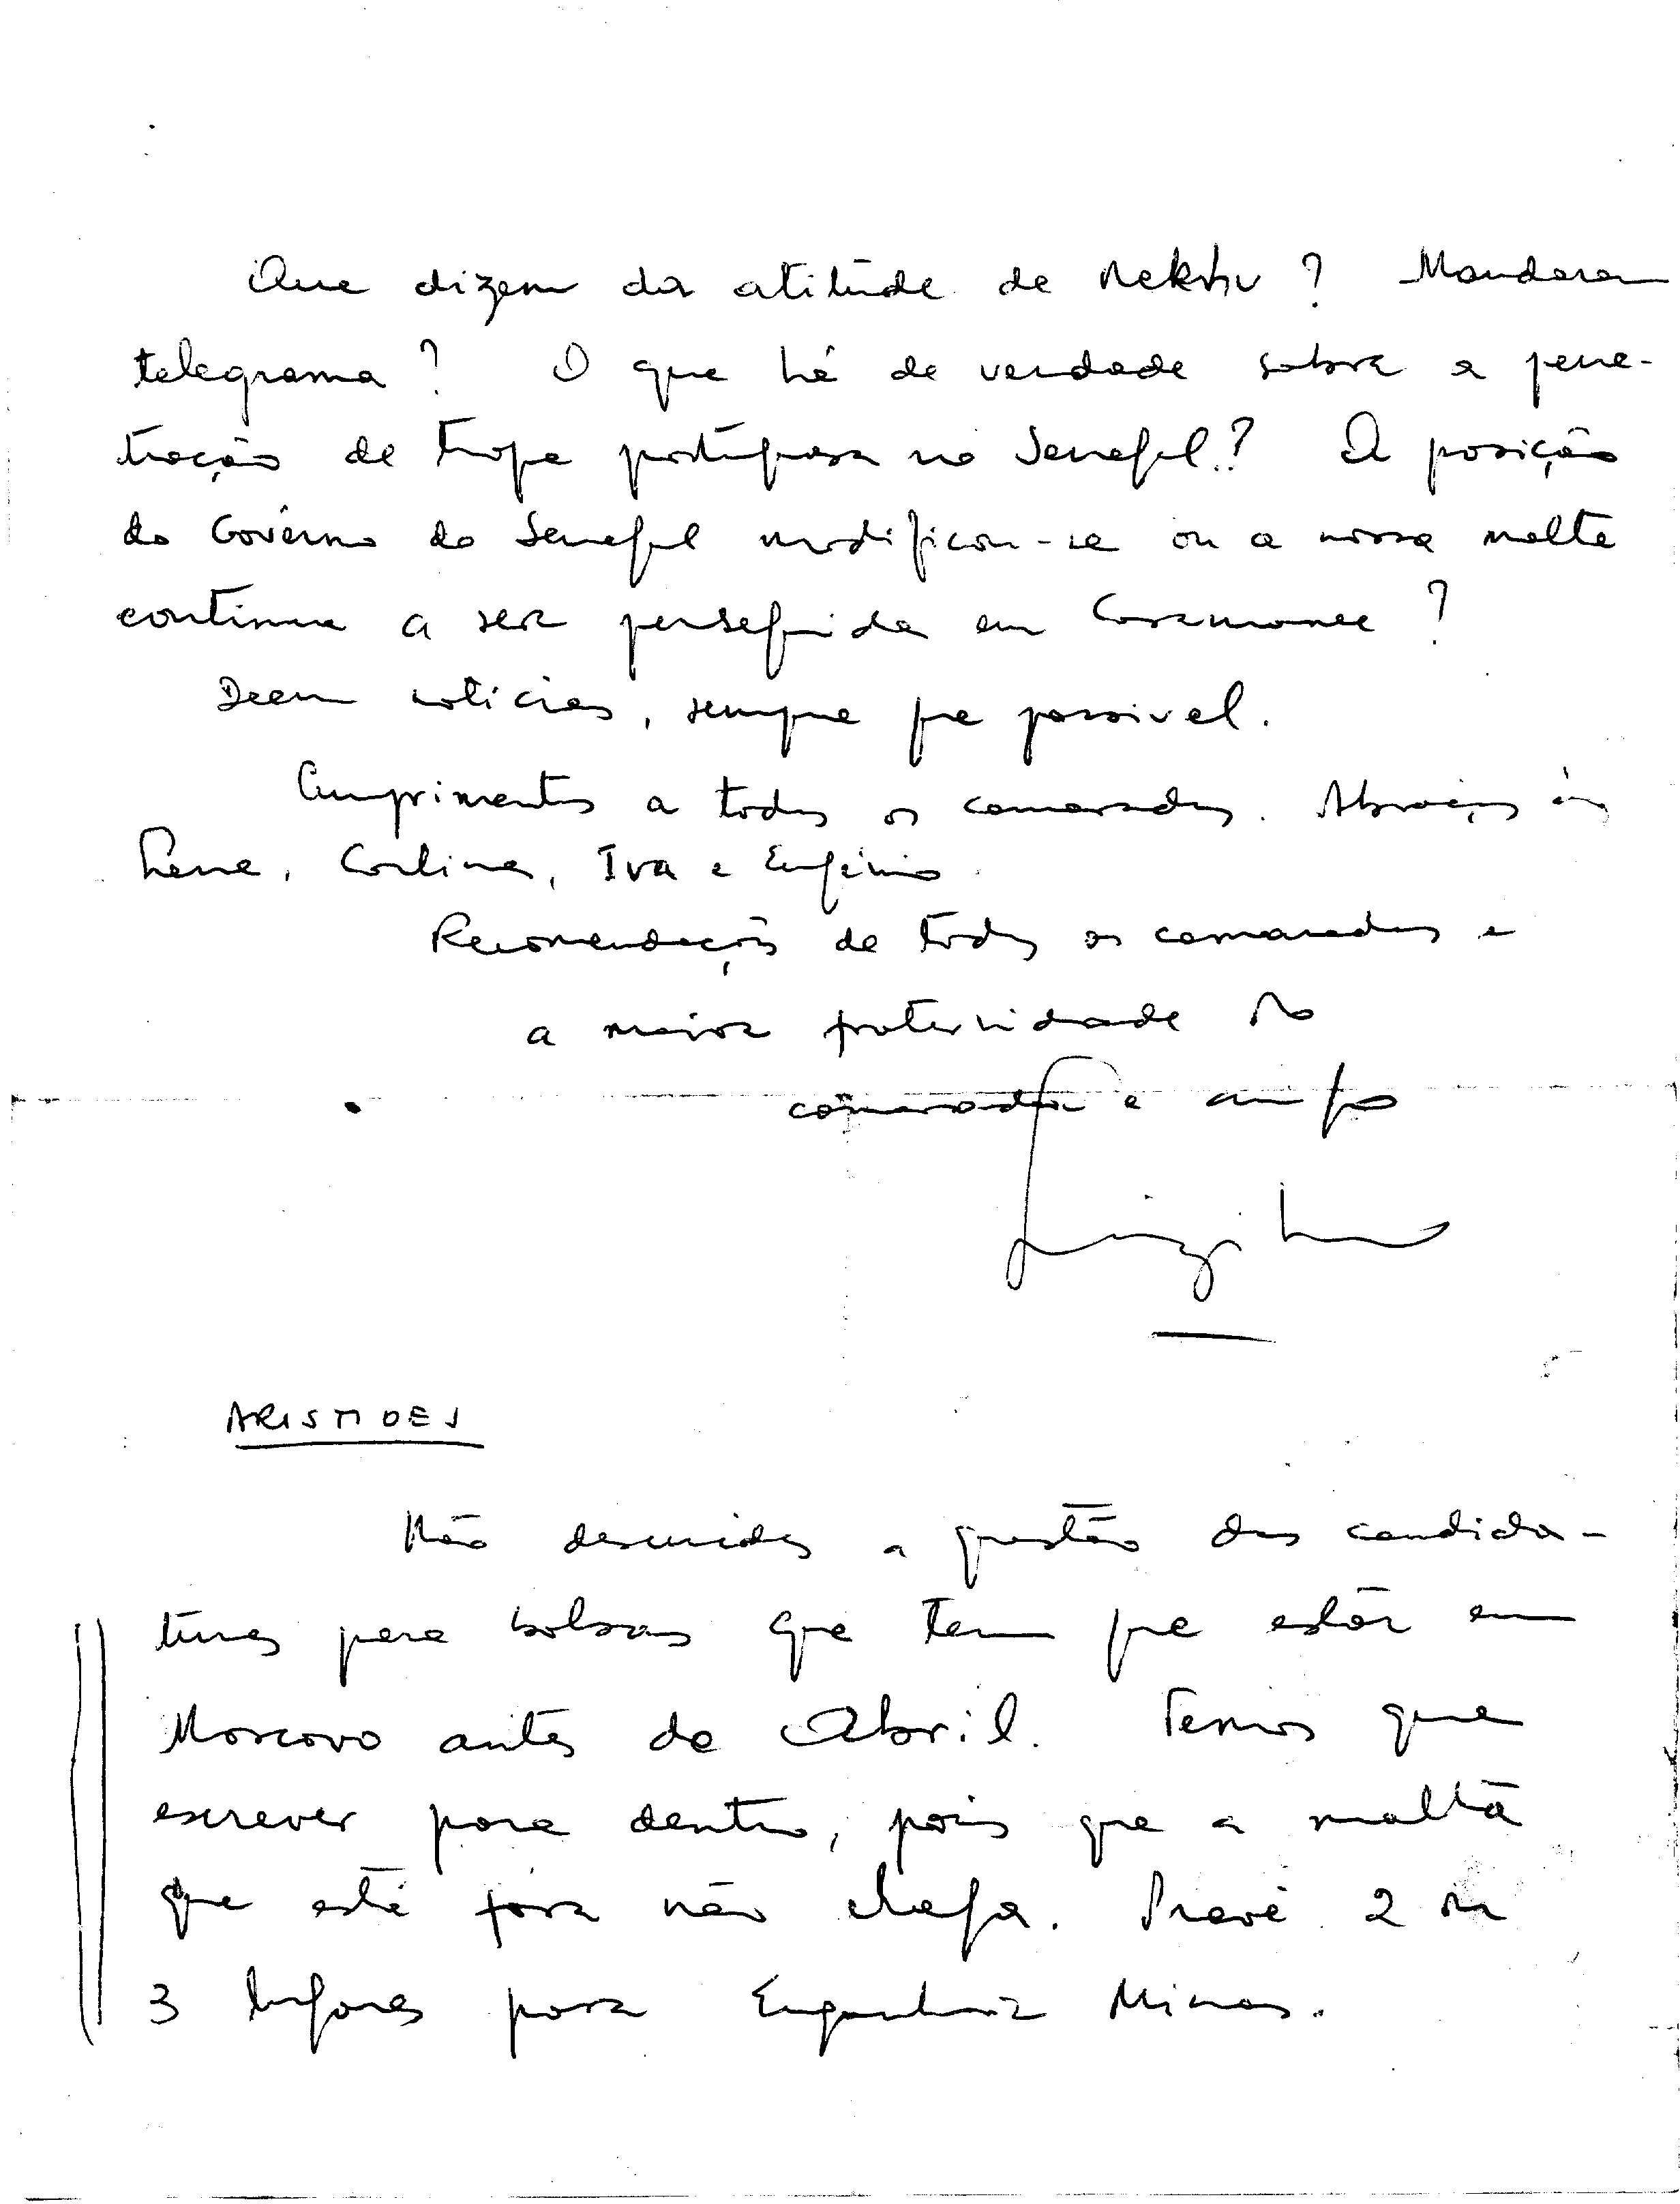 Que dizem da atitude de Nekhru? Mandaram
telegrama? O que há de verdade sobre a pene-
tração de tropa portuguesa no Senegal? A posição
do Govêrno do Senegal modificou-se ou a nossa malta
continua a ser perseguida em Casamance?
Deem notícias, sempre que possivel.
Cumprimentos a todos os camaradas. Abraços às
Lena, Carlina, Iva e Eugénio.
Recomendações de todos os camaradas e
a maior fraternidade do
camarada e amigo
ARISTIDES
Não descuides a questão das candida-
turas para bolsas que tem que estar em
Moscovo antes de Abril. Temos que
escrever para dentro, pois que a malta
que está fora não chega. Prevê 2 ou
3 lugares para Engenharia Minas.